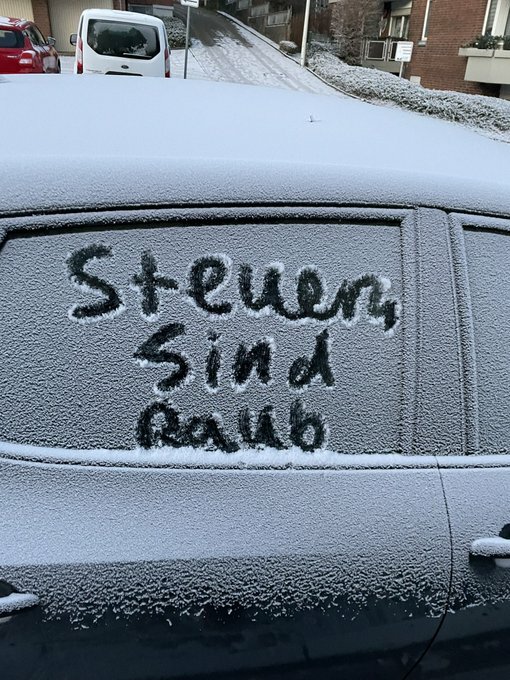 Steuern
sind
Raub